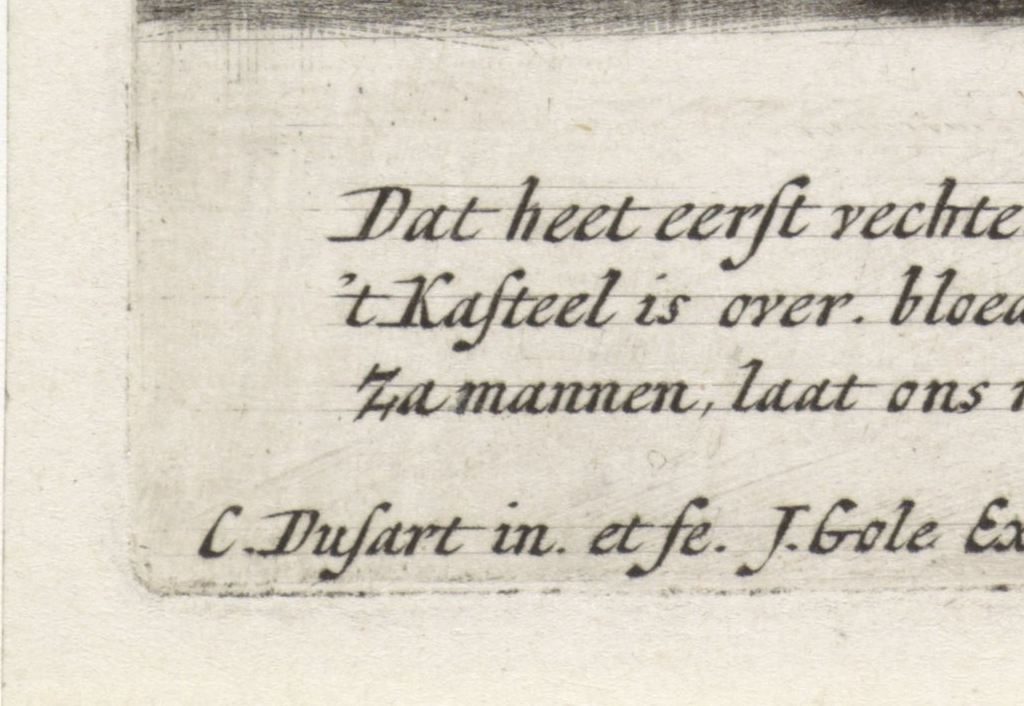 Dat heet eerſt vechte
't Kaſteel is over. bloed
Za mannen, laat ons
C. Duſart in. et fe. J. Gole Ex